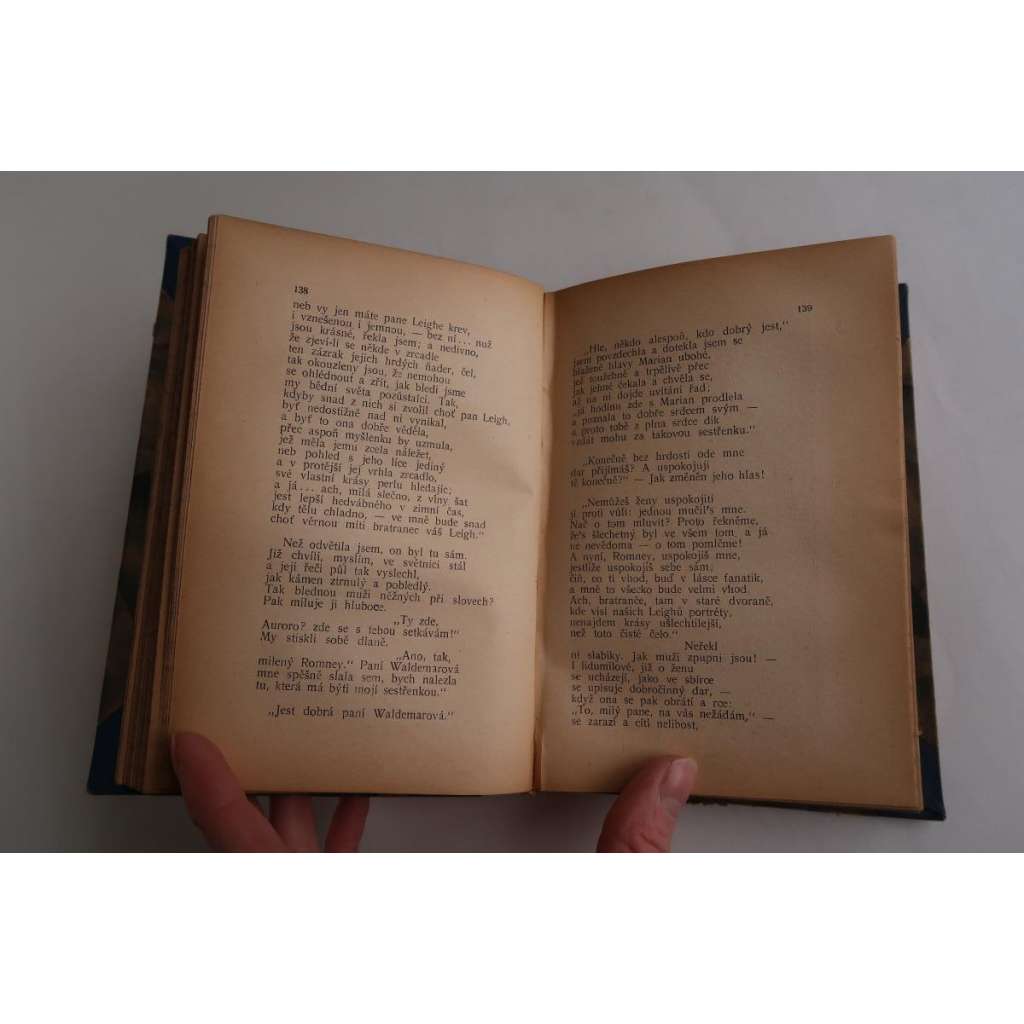 138
neb vy jen máte pane Leighe krev,
i vznešenou i jemnou, — bez ní... nuž
jsou krásné, řekla jsem; a nedivno,
že zjeví-li se někde v zrcadle
ten zázrak jejich hrdých ňader, čel,
tak okouzleny jsou, že nemohou
se ohlédnout a zřít, jak bledí jsme
my bědní světa pozůstalci. Tak,
kdyby snad z nich si zvolil choť pan Leigh,
byť nedostižně nad ni vynikal,
a byť to ona dobře věděla,
přec aspoň myšlenku by uzmula,
jež měla jemu zcela náležet,
neb pohled s jeho líce jediný
a v protější jej vrhla zrcadlo,
své vlastní krásy perlu hledajíc;
a já... ach, milá slečno, z vlny šat
jest lepší hedvábného v zimní čas,
kdy tělu chladno, — ve mně bude snad
choť věrnou míti bratranec váš Leigh."
Než odvětila jsem, on byl tu sám.
Již chvíli, myslím, ve světnici stál
a její řeči půl tak vyslechl,
jak kámen ztrnulý a pobledlý.
Tak blednou muži něžných při slovech?
Pak miluje ji hluboce.
„Ty zde,
Auroro? zde se s tebou setkávám!"
My stiskli sobě dlaně.
„Ano, tak,
milený Romney." Paní Waldemarová
mne spěšně slala sem, bych nalezla
tu, která má býti mojí sestřenkou."
„Jest dobrá paní Waldemarová."
139
„Hle, někdo alespoň, kdo dobrý jest,"
jsem povzdechla a dotekla jsem se
blažené hlavy Marian ubohé,
jež toužebně a trpělivě přec
jak jehně čekala a chvěla se,
až na ni dojde uvítání řad;
„já hodinu zde s Marian prodlela
a poznala to dobře srdcem svým —
a proto tobě z plna srdce dík
vzdát mohu za takovou sestřenku."
„Konečně bez hrdosti ode mne
dar přijímáš? A uspokojuji
tě konečně?" — Jak změněn jeho hlas!
„Nemůžeš ženy uspokojiti
jí proti vůli: jednou mučil's mne.
Nač o tom mluvit? Proto řekněme,
že's šlechetný byl ve všem tom, a já
ne nevědoma — o tom pomlčme!
A nyní, Romney, uspokojíš mne,
jestliže uspokojíš sebe sám;
čiň, co ti vhod, buď v lásce fanatik,
a mně to všecko bude velmi vhod.
Ach, bratranče, tam v staré dvoraně,
kde visí našich Leighů portréty,
nenajdem krásy ušlechtilejší,
než toto čisté čelo."
Neřekl
ni slabiky. Jak muži zpupní jsou! —
I lidumilové, již o ženu
se ucházejí, jako ve sbírce
se upisuje dobročinný dar, —
když ona se pak obrátí a rce:
„To, milý pane, na vás nežádám," —
se zarazí a cítí nelibost,